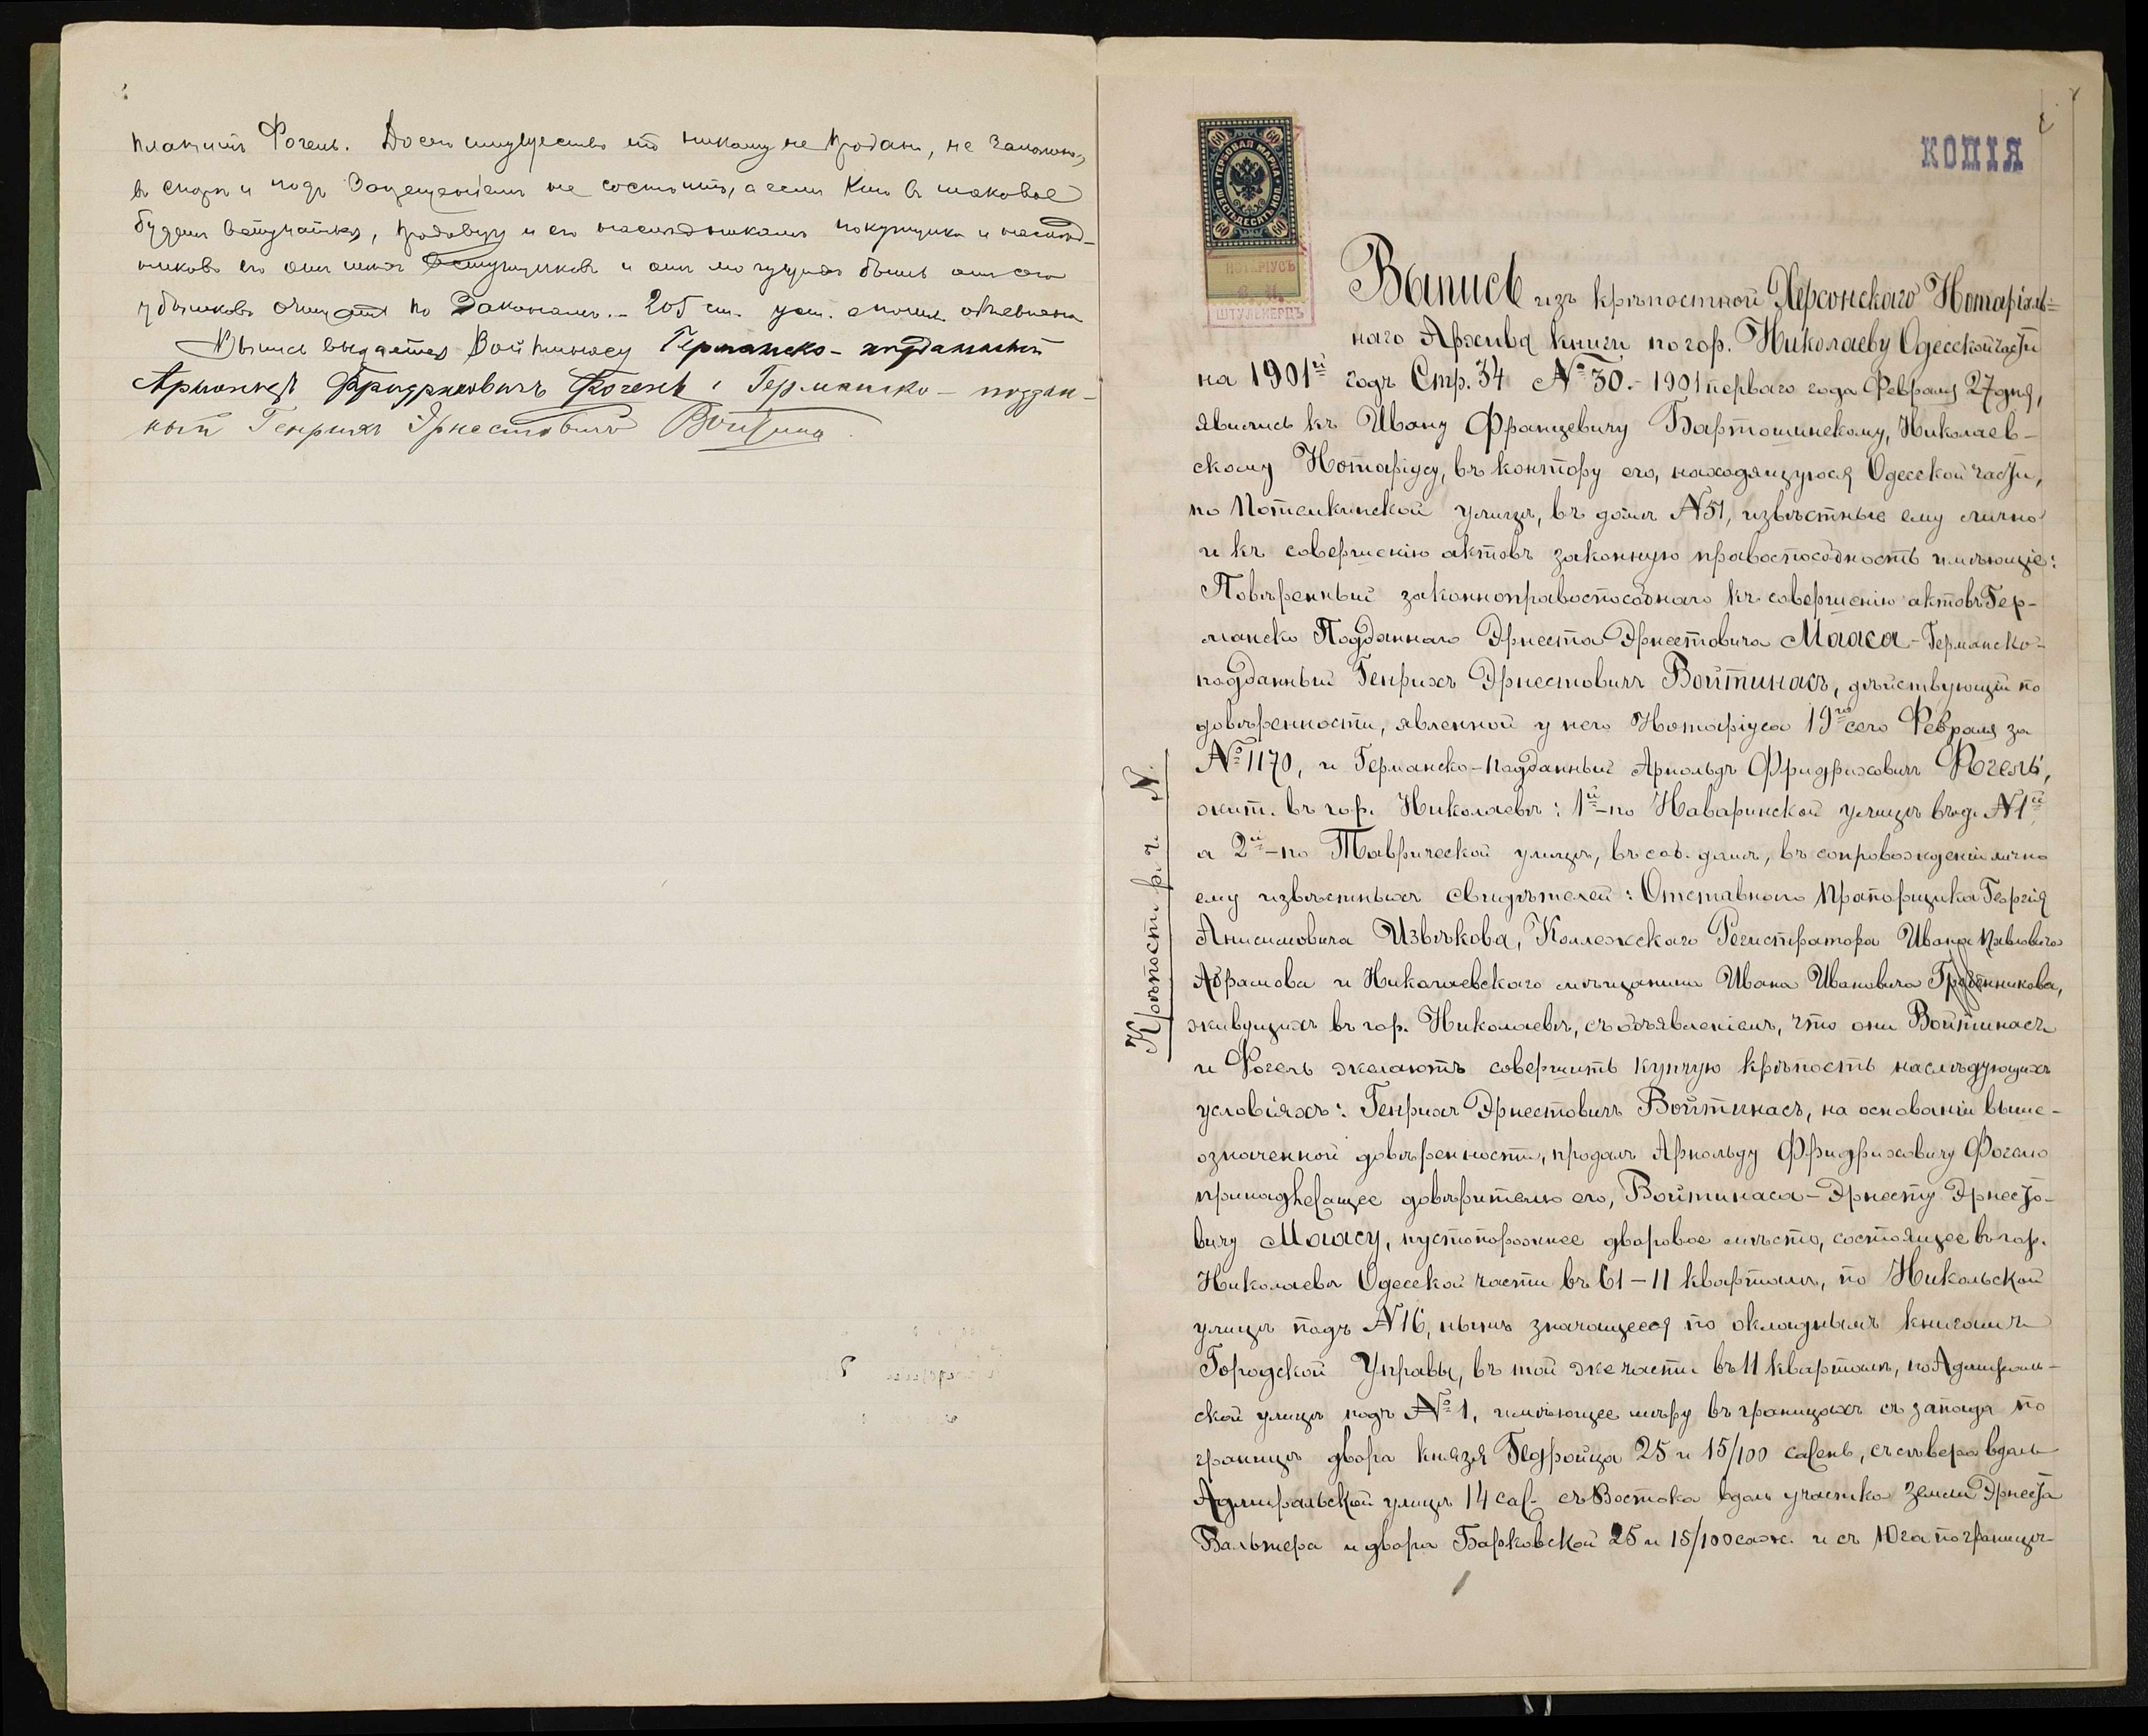 платитъ Фогель. До сего имущество это никому не продано, не заложено,
въ споръ и подъ запрещеніемъ не состоитъ, а если Кто въ таковое
будетъ вступаться, продавцу и его наслѣдникамъ покупщика и наслѣд-
никовъ его отъ тѣхъ вступщиковъ и отъ могущихъ быть отъ сего
убытковъ очищать по Законамъ. - 205 ст. уст. о пошл. объявлена
Выпись выдается Войтинасу Германско-подданный
Арнольдъ Фридриховичъ Фогель, Германско-поддан-
ный Генрихъ Эрнестовичъ Войтинас
КОПІЯ
60 60
ГЕРБОВАЯ МАРКА
ШЕСТЬДЕСЯТЪ КОП.
60 60
НОТАРІУСЪ
ШТУЛЬКЕРЦЪ
Выпись изъ крѣпостной Херсонскаго Нотаріаль-
наго Архива книги по гор. Николаеву Одесской части
на 1901й годъ Стр. 34 № 30. - 1901 перваго года Февраля 27 дня,
явились къ Ивану Францевичу Бартошинскому, Николаев-
скому Нотаріусу, въ контору его, находящуюся Одесской части,
по Потемкинской улицѣ, въ домѣ №51, извѣстные ему лично
и къ совершенію актовъ законную правоспособность имѣющіе:
Повѣренный законноправоспособнаго къ совершенію актовъ Гер-
манско Подданнаго Эрнеста Эрнестовича Мааса - Германско-
подданный Генрихъ Эрнестовичъ Войтинасъ, дѣйствующій по
довѣренности, явленной у него Нотаріуса 19го сего Февраля за
№ 1170, и Германско-подданный Арнольдъ Фридриховичъ Фогель,
жит. въ гор. Николаевѣ: 1й - по Наваринской улицѣ въ д. №1й
а 2й - по Таврической улицѣ, въ соб. домѣ, въ сопровожденіи лично
ему извѣстныхъ свидѣтелей: Отставного Прапорщика Георгія
Анисимовича Извѣкова, Коллежскаго Регистратора Ивана Павловича
Абрамова и Николаевскаго мѣщанина Ивана Ивановича Гребенникова,
живущихъ въ гор. Николаевѣ, съ объявленіемъ, что они Войтинасъ
и Фогель желаютъ совершить купчую крѣпость на слѣдующихъ
условіяхъ: Генрихъ Эрнестовичъ Войтинасъ, на основаніи выше-
означенной довѣренности, продалъ Арнольду Фридриховичу Фогелю
принадлежащее довѣрителю его, Войтинаса - Эрнесту Эрнесто-
вичу Маасу, пустопорожнее дворовое мѣсто, состоящее въ гор.
Николаевѣ Одесской части въ 61-11 кварталѣ, по Никольской
улицѣ подъ №16, нынѣ значащееся по окладнымъ книгамъ
Городской Управы, въ той же части въ 11 кварталѣ, по Адмираль-
ской улицѣ подъ № 1, имѣющее мѣру въ границахъ съ запада по
границѣ двора князя Гедройца 25 и 15/100 сажень, съ сѣвера вдоль
Адмиральской улицы 14 саж. съ Востока вдоль участка земли Эрнеста
Вальтера и двора Барковской 25 и 15/100 саж. и съ Юга по границѣ
Крѣпости. р. ч. №.